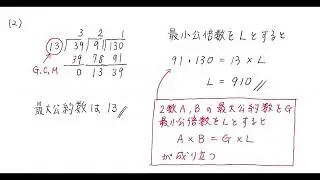 (2)
3 2 1
13) 39 91 130
39 78 91
0 13 39
G.C.M
最大公約数は 13
最小公倍数をLとすると
91・130 = 13 × L
L = 910
2数A,Bの最大公約数をG
最小公倍数をLとすると
A × B = G × L
が成り立つ